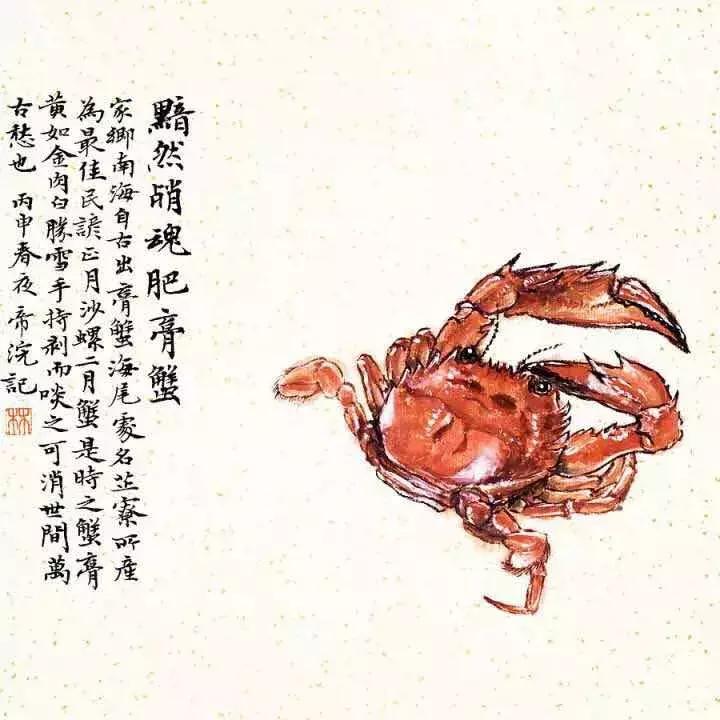 黯然销魂肥膏蟹
家鄉南海自古出膏蟹海尾處名芷寮所產
為最佳民諺正月沙螺二月蟹是時之蟹膏
黃如金肉白勝雪手持剥而啖之可消世間萬
古愁也 丙申春夜 帝浣記
林